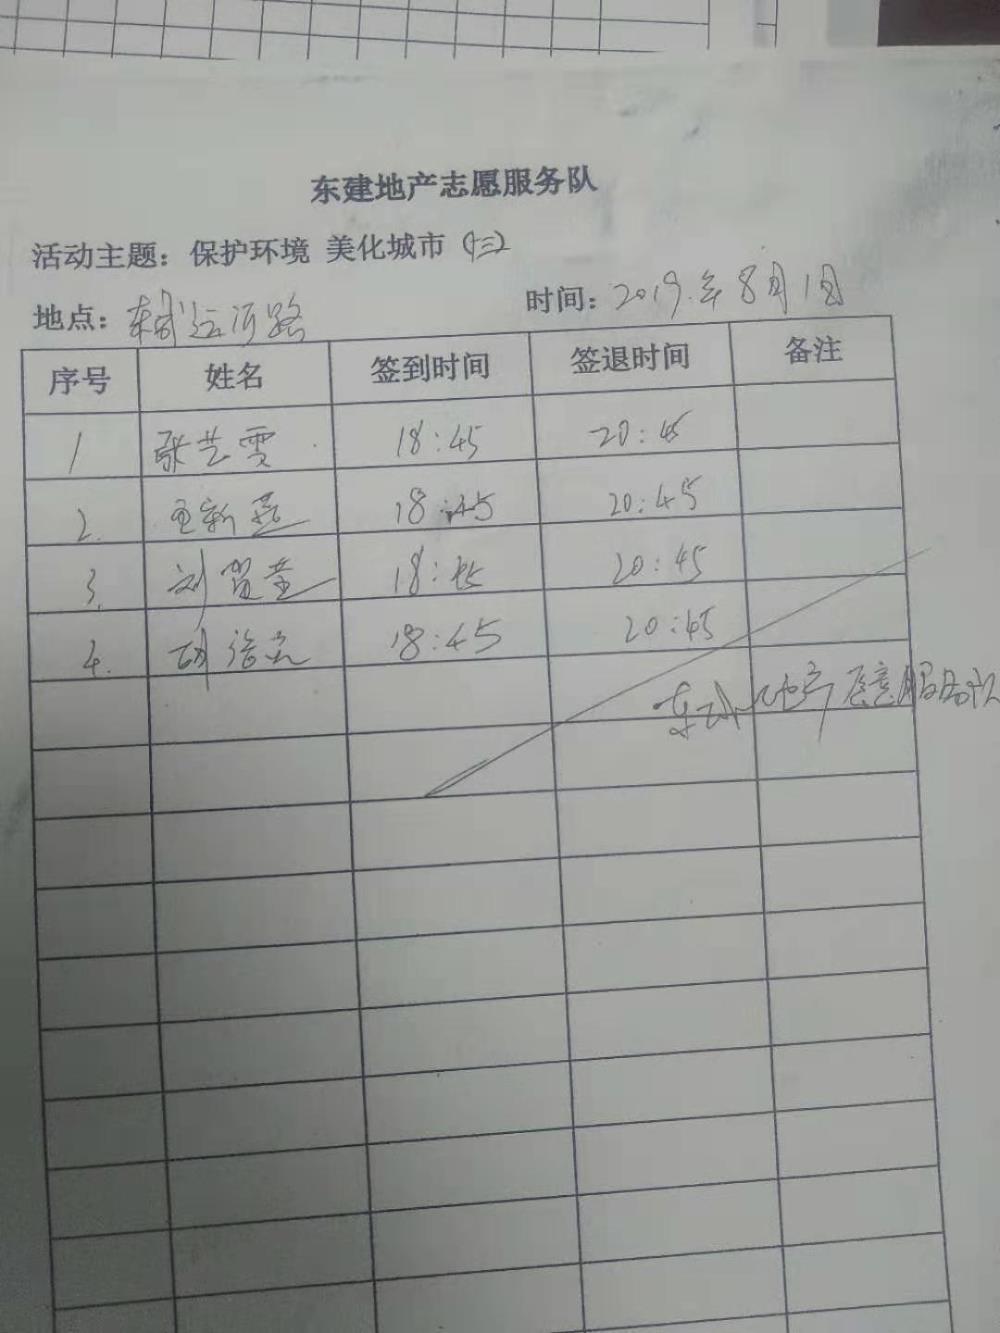 东建地产志愿服务队
活动主题：保护环境 美化城市（十三）
地点：东城运河路 时间：2019年8月1日
序号 姓名 签到时间 签退时间 备注
1 张芸雯 18:45 20:45
2. 王新燕 18:45 20:45
3. 刘贺莹 18:45 20:45
4. 18:45 20:45